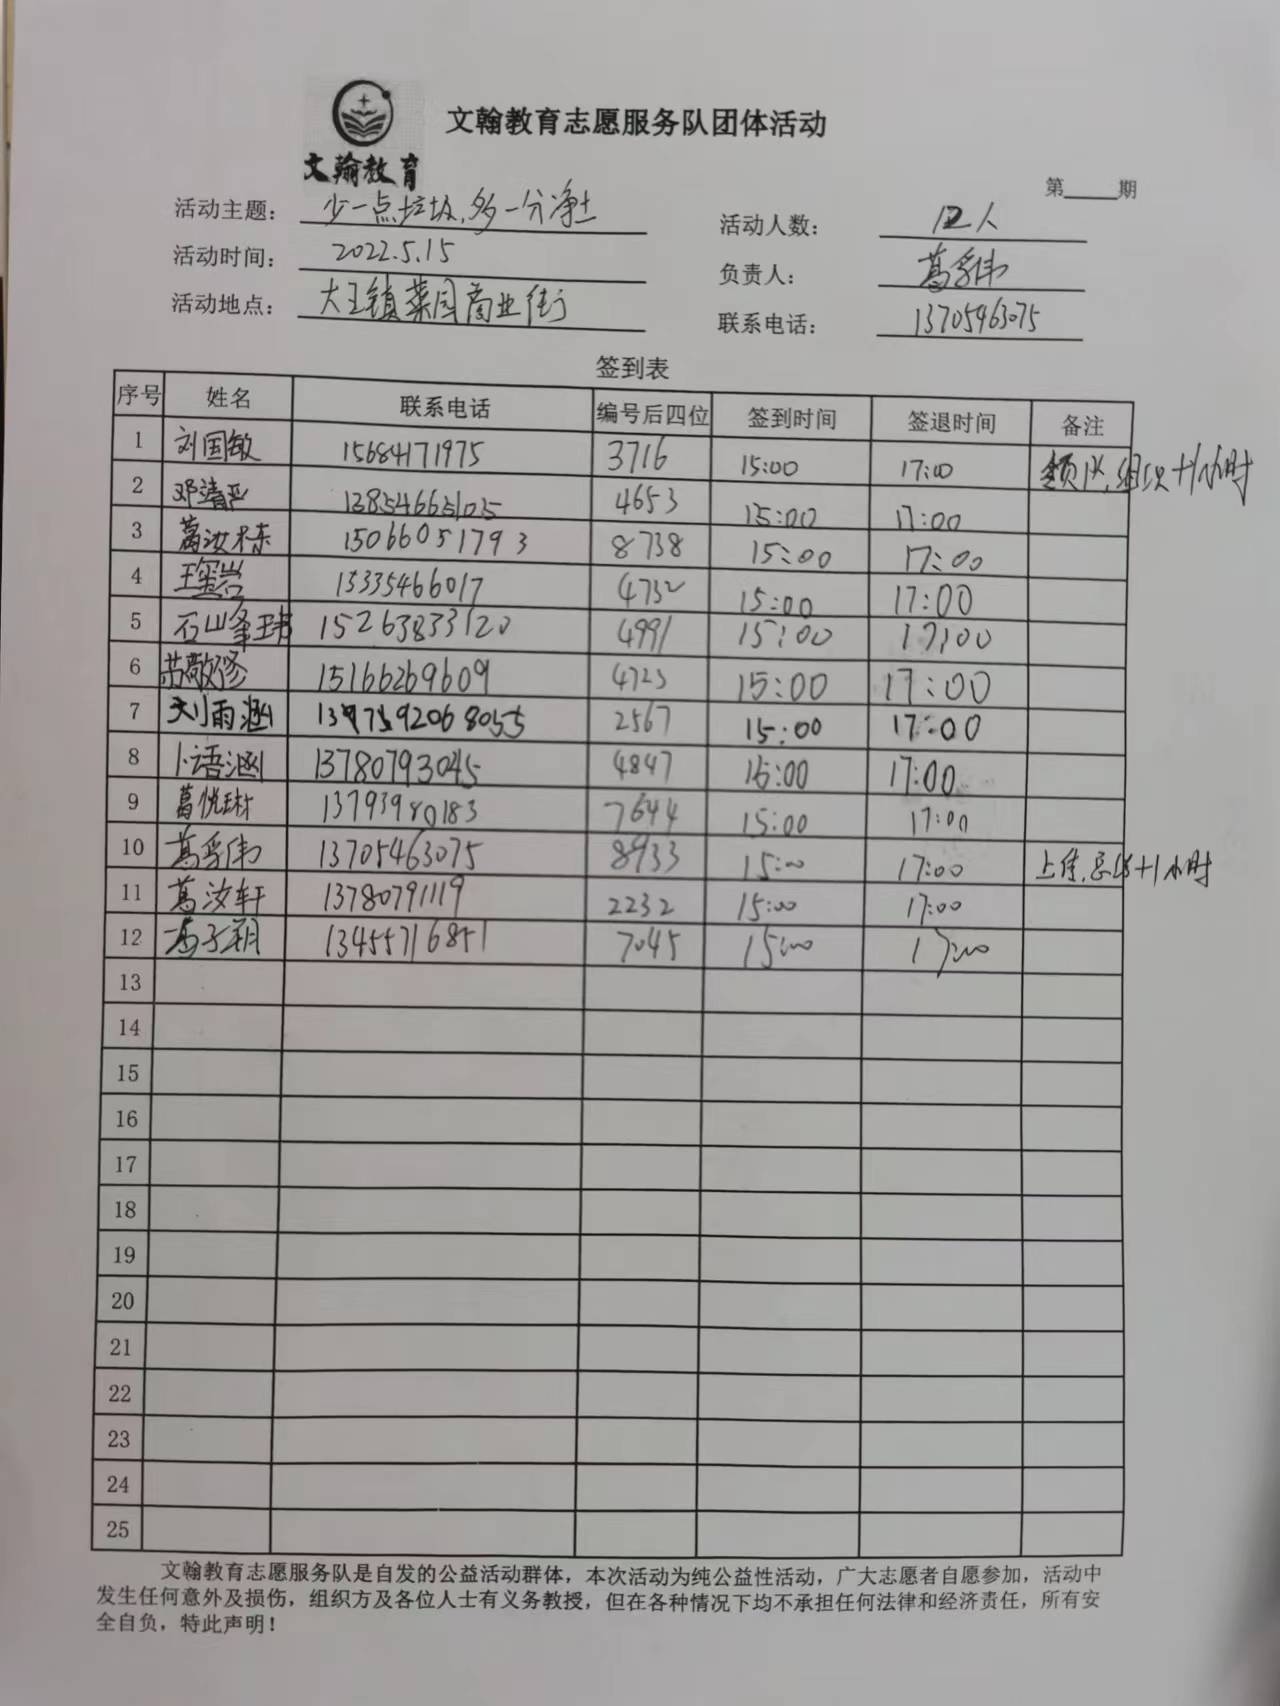 文翰教育志愿服务队团体活动
文翰教育
第____期
活动主题： 少一点垃圾，多一分净土 活动人数： 12人
活动时间： 2022.5.15 负责人： 葛孚伟
活动地点： 大王镇菜园商业街 联系电话： 13705463075
签到表
序号 姓名 联系电话 编号后四位 签到时间 签退时间 备注
1 刘国敏 15684171975 3716 15:00 17:00 领队，组织+1小时
2 邓清严 4653 15:00 17:00
3 葛汝东 15066051793 8738 15:00 17:00
4 王玺岩 15335466017 4732 15:00 17:00
5 石峰玮 15263833120 4991 15:00 17:00
6 苏敬修 15166269609 4723 15:00 17:00
7 刘雨涵 2567 15:00 17:00
8 卜语涵 13780793045 4847 15:00 17:00
9 葛悦琳 13793980183 7644 15:00 17:00
10 葛孚伟 13705463075 8933 15:00 17:00 上传，总结+1小时
11 葛汝轩 13780791119 2232 15:00 17:00
12 葛子翔 13455716851 7045 15:00 17:00
13
14
15
16
17
18
19
20
21
22
23
24
25
文翰教育志愿服务队是自发的公益活动群体，本次活动为纯公益性活动，广大志愿者自愿参加，活动中
发生任何意外及损伤，组织方及各位人士有义务教授，但在各种情况下均不承担任何法律和经济责任，所有安
全自负，特此声明！